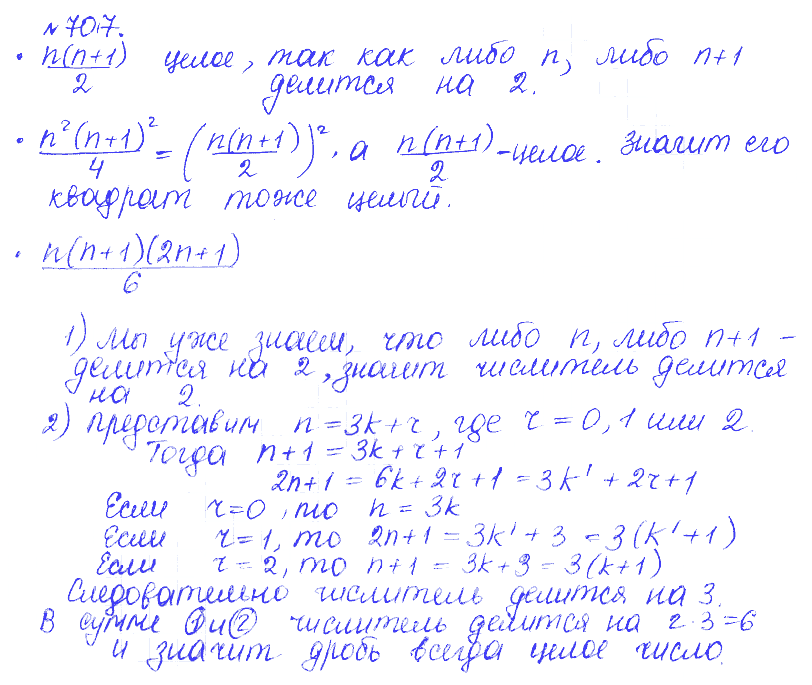 № 707.
• n(n+1)/2 целое, так как либо n, либо n+1
делится на 2.
• n²(n+1)²/4 = (n(n+1)/2)². а n(n+1)/2 - целое. Значит его
квадрат тоже целый.
• n(n+1)(2n+1)/6
1) Мы уже знаем, что либо n, либо n+1 -
делится на 2, значит числитель делится
на 2.
2) Представим n = 3k + r, где r = 0, 1 или 2.
Тогда n+1 = 3k + r + 1
2n+1 = 6k + 2r + 1 = 3k' + 2r + 1
Если r = 0, то n = 3k
Если r = 1, то 2n+1 = 3k' + 3 = 3(k' + 1)
Если r = 2, то n+1 = 3k + 3 = 3(k+1)
Следовательно числитель делится на 3.
В сумме ① и ② числитель делится на 2·3=6
и значит дробь всегда целое число.